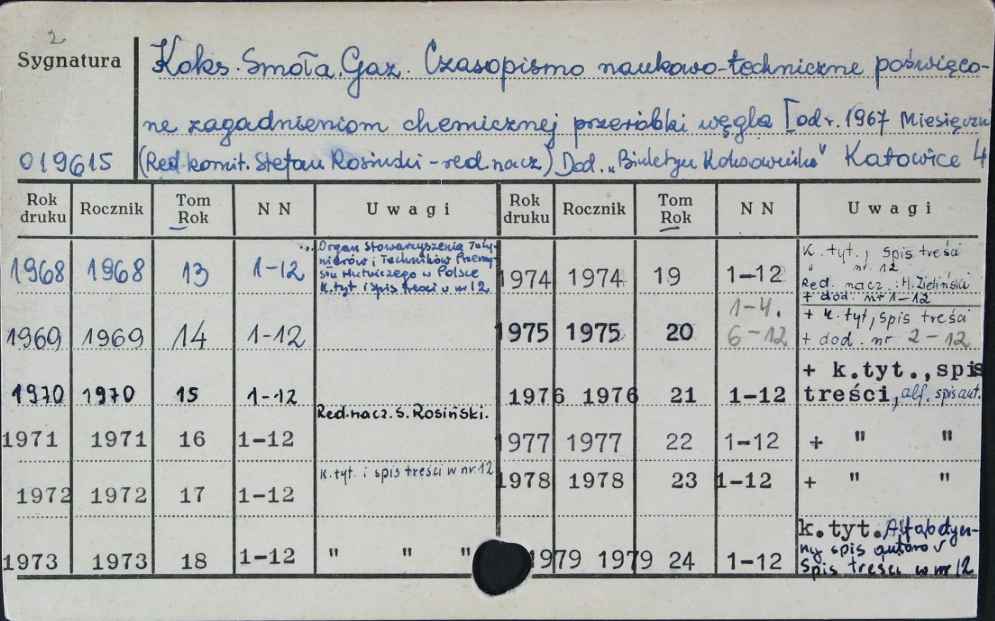 2
Sygnatura
Koks. Smoła. Gaz. Czasopismo naukowo-techniczne poświęco-
ne zagadnieniom chemicznej przeróbki węgla [od r. 1967 Miesięczn
019615 (Red. komit. Stefan Rosiński - red. nacz) Dod. „Biuletyn Koksownika" Katowice 4
Rok druku Rocznik Tom Rok NN Uwagi Rok druku Rocznik Tom Rok NN Uwagi
1968 1968 13 1-12 Organ Stowarzyszenia Inży-
nierów i Techników Przemy-
słu Hutniczego w Polsce
k.tyt i spis treści w nr 12
1969 1969 14 1-12
1970 1970 15 1-12
Red. nacz. S. Rosiński.
1971 1971 16 1-12
1972 1972 17 1-12 k.tyt. i spis treści w nr 12
1973 1973 18 1-12 " " "
1974 1974 19 1-12 k. tyt., spis treści
nr. 12
Red. nacz. : H. Zieliński
+ dod. nr 1-12
1975 1975 20 1-4. 6-12 + k.tyt, spis treści
+ dod. nr 2-12
1976 1976 21 1-12 + k.tyt., spis
treści, alf. spis aut.
1977 1977 22 1-12 + " "
1978 1978 23 1-12 + " "
1979 1979 24 1-12 k.tyt. Alfabetycz-
ny spis autorów
Spis treści w nr 12